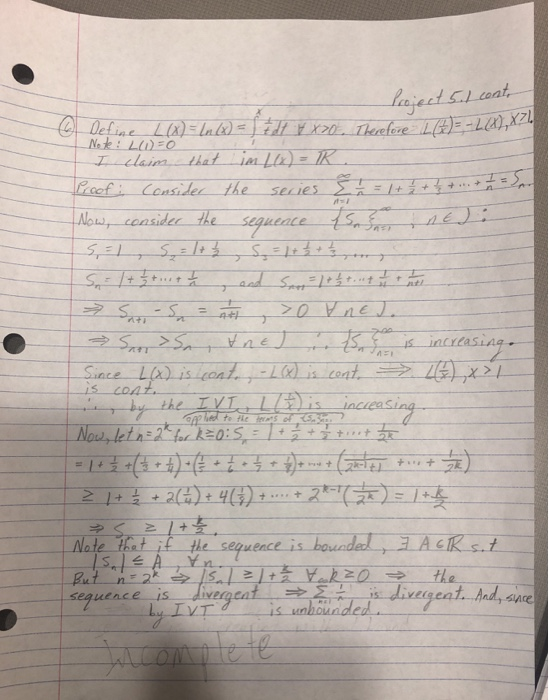 Project 5.1 cont.
④ Define L(x) = ln(x) = ∫₁ˣ 1/t dt ∀ x>0. Therefore L(1/x) = -L(x), x>1.
Note: L(1)=0
I claim that im L(x) = ℝ
Proof: Consider the series ∑_{n=1}^∞ 1/n = 1 + 1/2 + 1/3 + ... + 1/n = Sₙ.
Now, consider the sequence {Sₙ}_{n=1}^∞, n ∈ J:
S₁ = 1, S₂ = 1 + 1/2, S₃ = 1 + 1/2 + 1/3, ...,
Sₙ = 1 + 1/2 + ... + 1/n, and Sₙ₊₁ = 1 + 1/2 + ... + 1/n + 1/(n+1)
⇒ Sₙ₊₁ - Sₙ = 1/(n+1), >0 ∀ n ∈ J.
⇒ Sₙ₊₁ > Sₙ, ∀ n ∈ J ∴ {Sₙ}_{n=1}^∞ is increasing.
Since L(x) is cont., -L(x) is cont. ⇒ L(1/x), x>1
is cont.
∴, by the IVT, L(1/x) is increasing.
applied to the terms of {Sₙ}_{n=1}^∞
Now, let n = 2ᵏ for k ≥ 0: Sₙ = 1 + 1/2 + 1/3 + ... + 1/2ᵏ
= 1 + 1/2 + (1/3 + 1/4) + (1/5 + 1/6 + 1/7 + 1/8) + ... + (1/(2ᵏ⁻¹+1) + ... + 1/2ᵏ)
≥ 1 + 1/2 + 2(1/4) + 4(1/8) + ... + 2ᵏ⁻¹(1/2ᵏ) = 1 + k/2
⇒ Sₙ ≥ 1 + k/2.
Note that if the sequence is bounded, ∃ A ∈ ℝ s.t
|Sₙ| ≤ A, ∀ n.
But n = 2ᵏ ⇒ |Sₙ| ≥ 1 + k/2 ∀ k ≥ 0 ⇒ the
sequence is divergent ⇒ ∑_{n=1}^∞ 1/n is divergent. And, since
by IVT is unbounded.
Incomplete